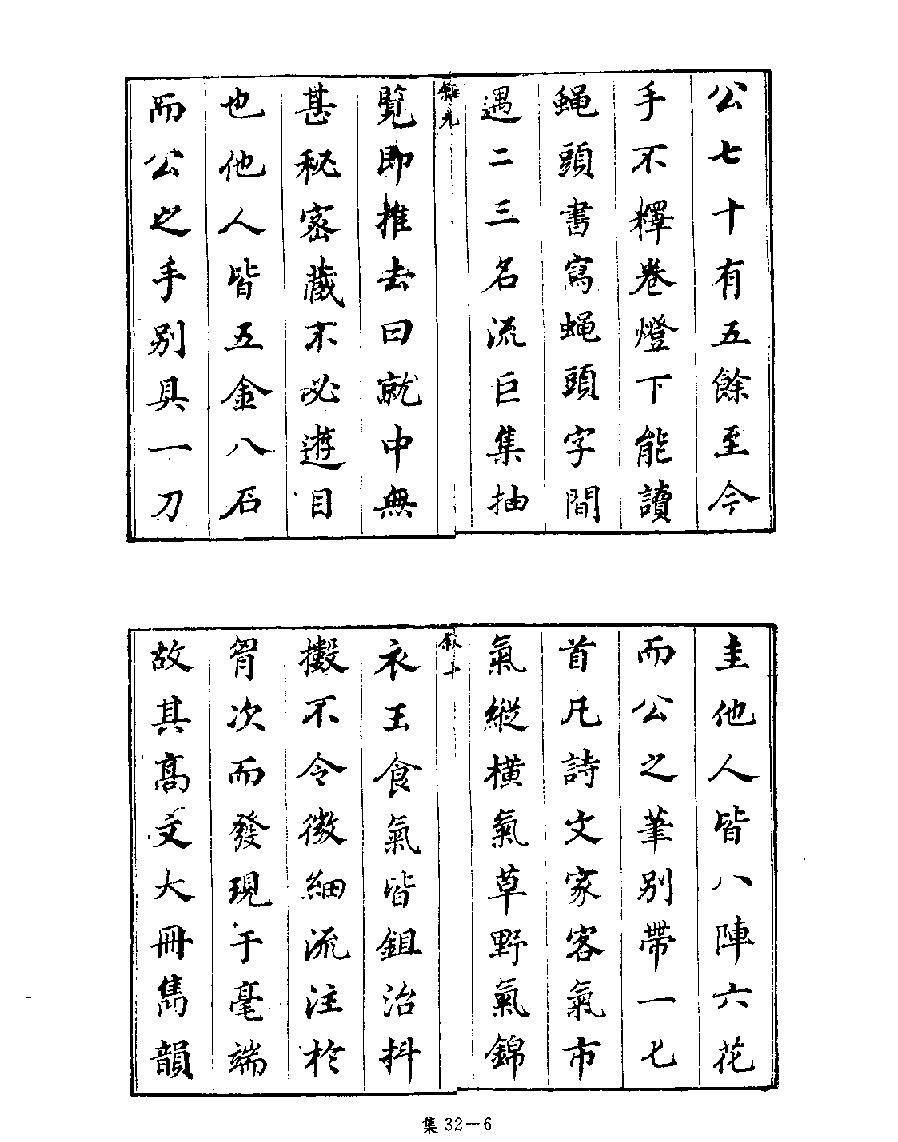 公七十有五餘至今
手不釋卷燈下能讀
蝇頭書寫蝇頭字間
遇二三名流巨集抽
叙九
覽即推去曰就中無
甚秘宻藏不必遊目
也他人皆五金八石
而公之手别具一刀
圭他人皆八陣六花
而公之筆别帶一七
首凡詩文家客氣市
氣縱橫氣草野氣錦
叙十
衣玉食氣皆鉏治抖
擻不令微細流注於
胷次而發現于毫端
故其高文大冊雋韻
集32—6